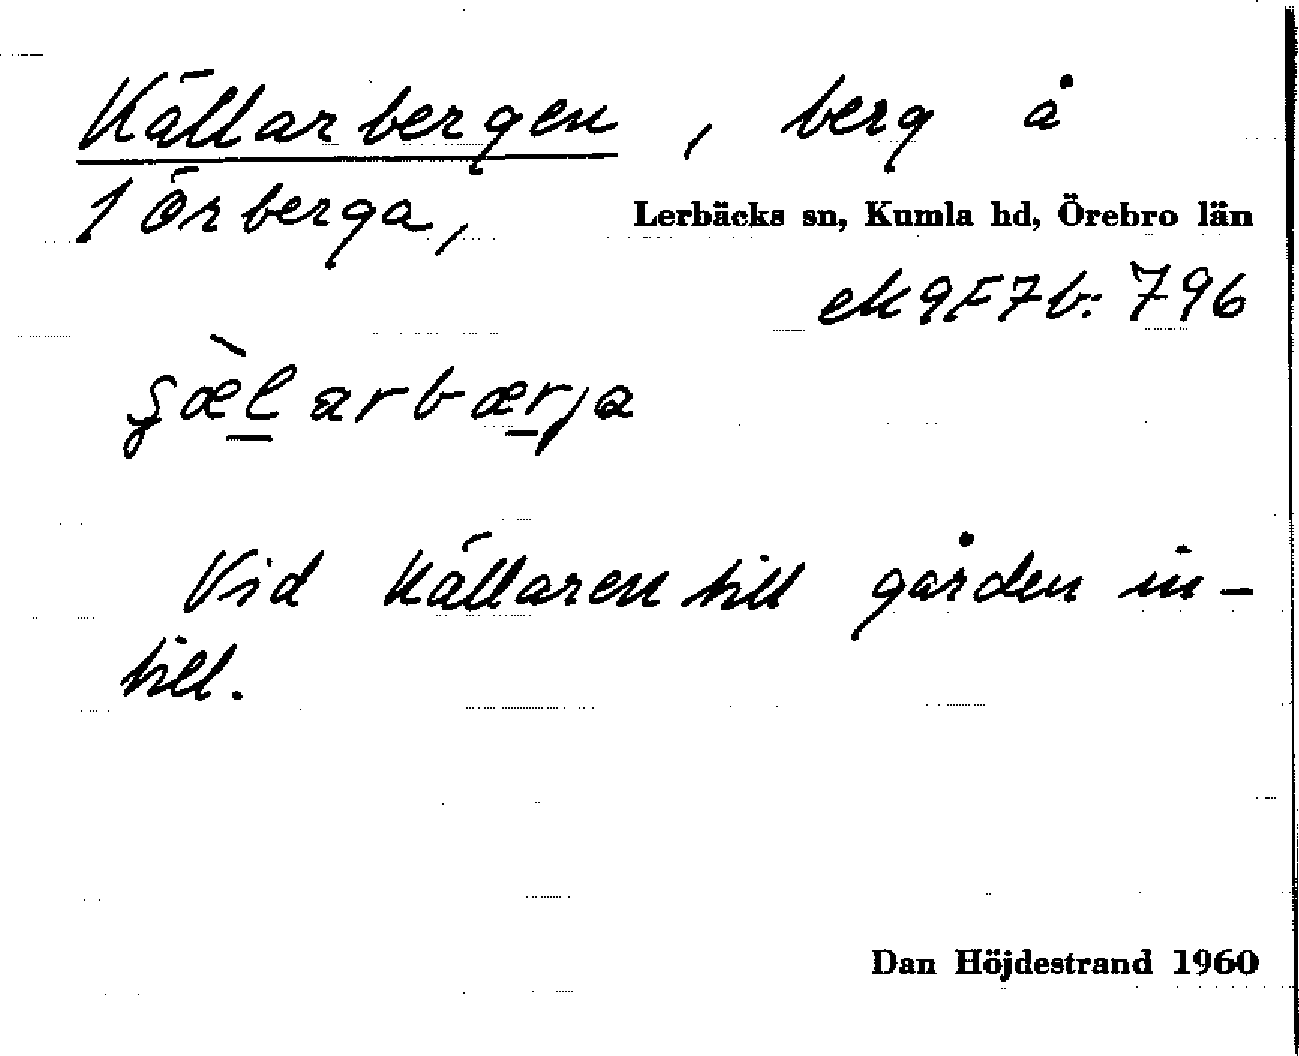 Källarbergen, berg å
1 Örberga, Lerbäcks sn, Kumla hd, Örebro län
ek 9F7b: 796
Vid källaren till gården in-
till.
Dan Höjdestrand 1960